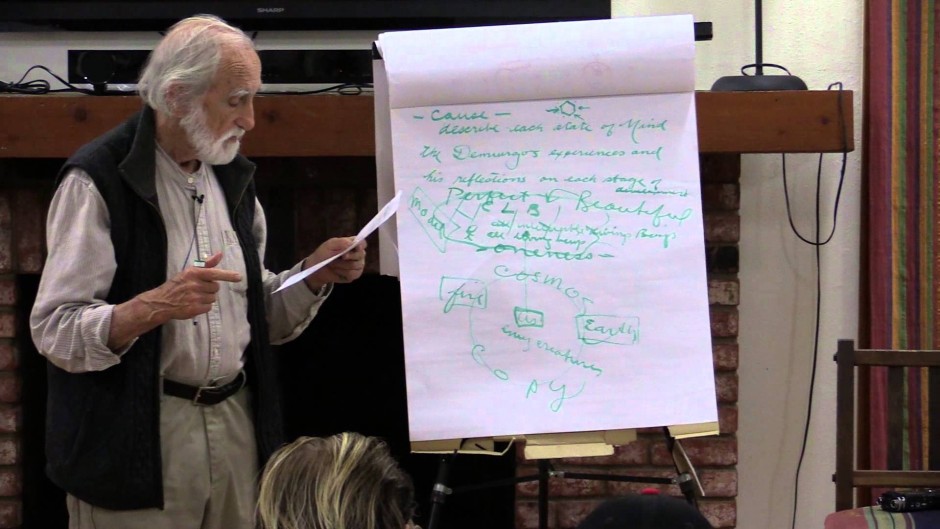 SHARP
- Cause -
describe each state of Mind
the Demiurgos experiences and
his reflections on each stage of
Perfect & Beautiful
Model
C L B
all intelligible Living Beings
& all living beings
- oneness -
COSMOS
fire
us
Earth
envy creatures
C O P Y